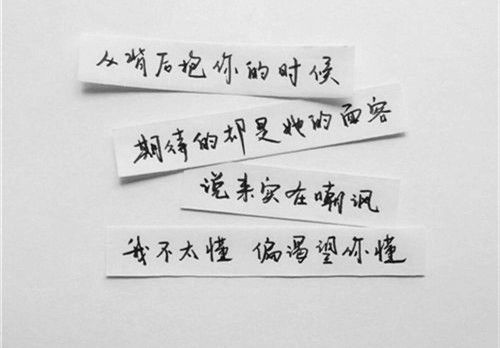 从背后抱你的时候
期待的却是她的面容
说来实在嘲讽
我不太懂 偏渴望你懂